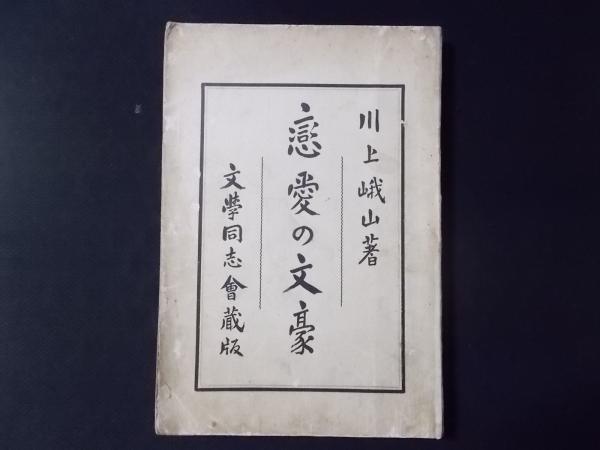 川上峨山著
戀愛の文豪
文學同志會蔵版